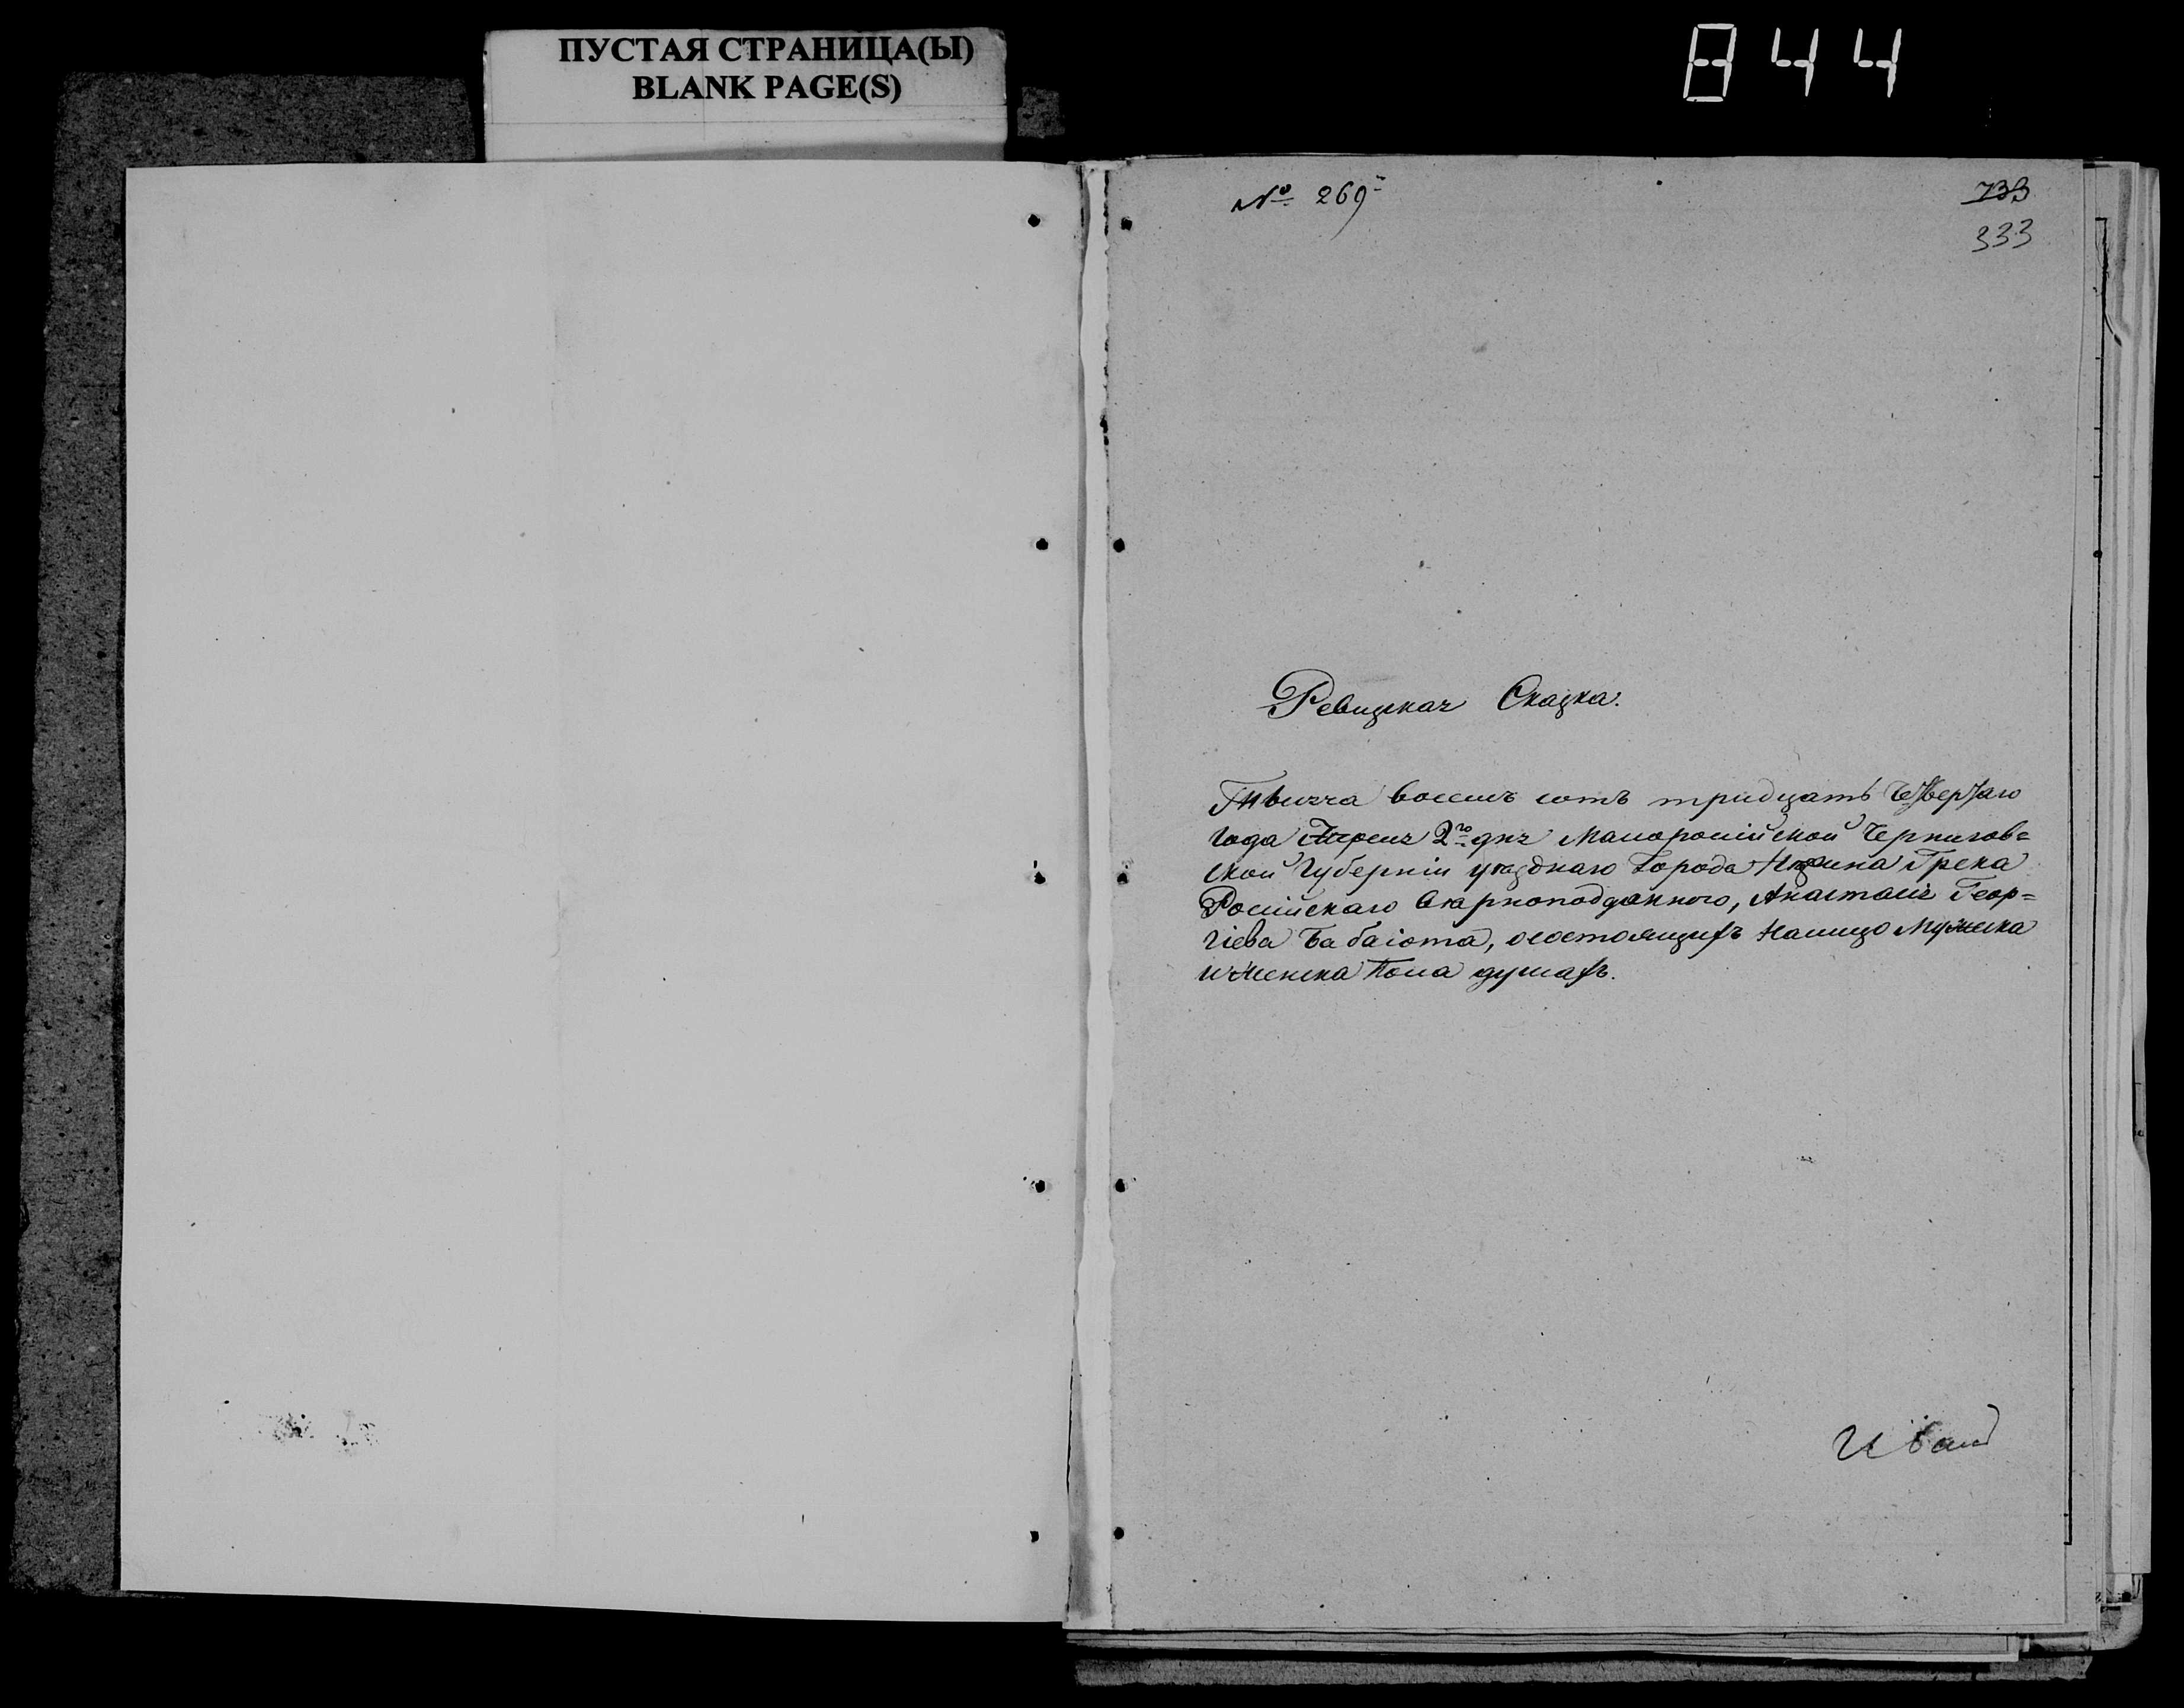 ПУСТАЯ СТРАНИЦА(Ы)
BLANK PAGE(S)
844
№ 269
733
333
Ревизская Сказка.
Тысяча восемь сотъ тридцать Четвертаго
года Апреля 2го дня Малоросійской Чернигов=
ской Губерніи уезднаго Города Нежина Грека
Російскаго верноподданного, Анастасія Геор=
гіева Бабаіота, осостоящихъ Налицо Мужеска
и Женска Пола душахъ.